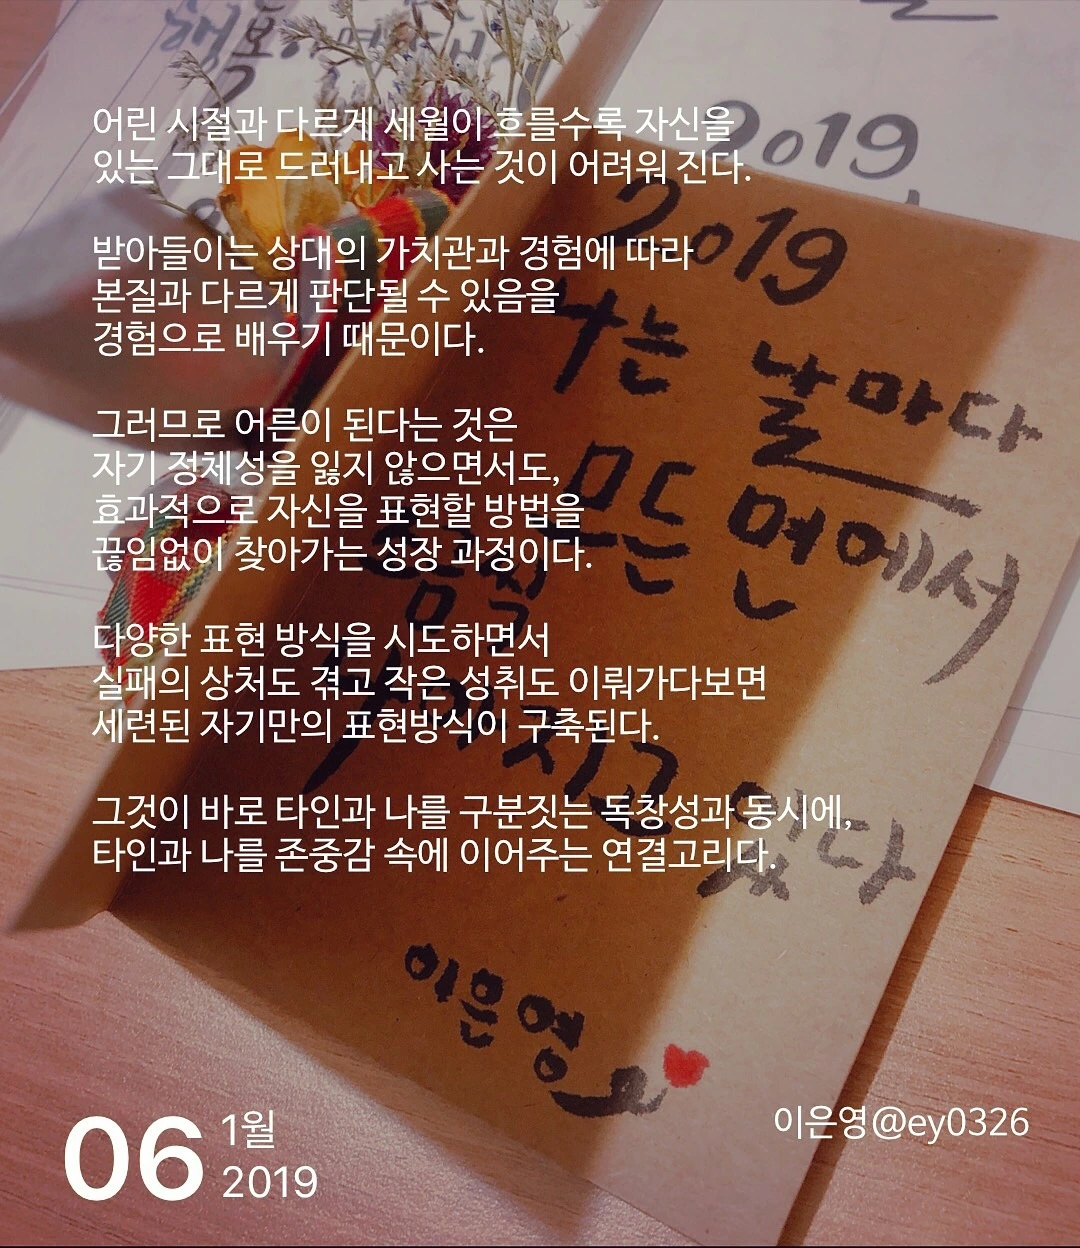 행복
2019
어린 시절과 다르게 세월이 흐를수록 자신을
있는 그대로 드러내고 사는 것이 어려워 진다.
받아들이는 상대의 가치관과 경험에 따라
본질과 다르게 판단될 수 있음을
경험으로 배우기 때문이다.
그러므로 어른이 된다는 것은
자기 정체성을 잃지 않으면서도,
효과적으로 자신을 표현할 방법을
끊임없이 찾아가는 성장 과정이다.
다양한 표현 방식을 시도하면서
실패의 상처도 겪고 작은 성취도 이뤄가다보면
세련된 자기만의 표현방식이 구축된다.
그것이 바로 타인과 나를 구분짓는 독창성과 동시에,
타인과 나를 존중감 속에 이어주는 연결고리다.
2019
나는 날마다
모든 면에서
조금씩
나아지고 있다
이은영
06 1월
2019
이은영@ey0326